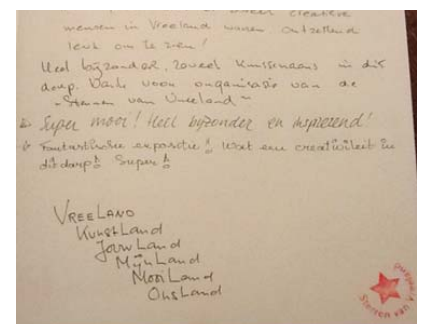 creatieve
mensen in Vreeland waren ontzettend
leuk om te zien!
Heel bijzonder, zoveel kunstenaars in dit
dorp. Dank voor organisatie van de
"Sterren van Vreeland"
Super mooi! Heel bijzonder en inspirerend!
Fantastische expositie! Wat een creativiteit in
dit dorp! Super!
VREELAND
KunstLand
JouwLand
MijnLand
MooiLand
OnsLand
Sterren van V